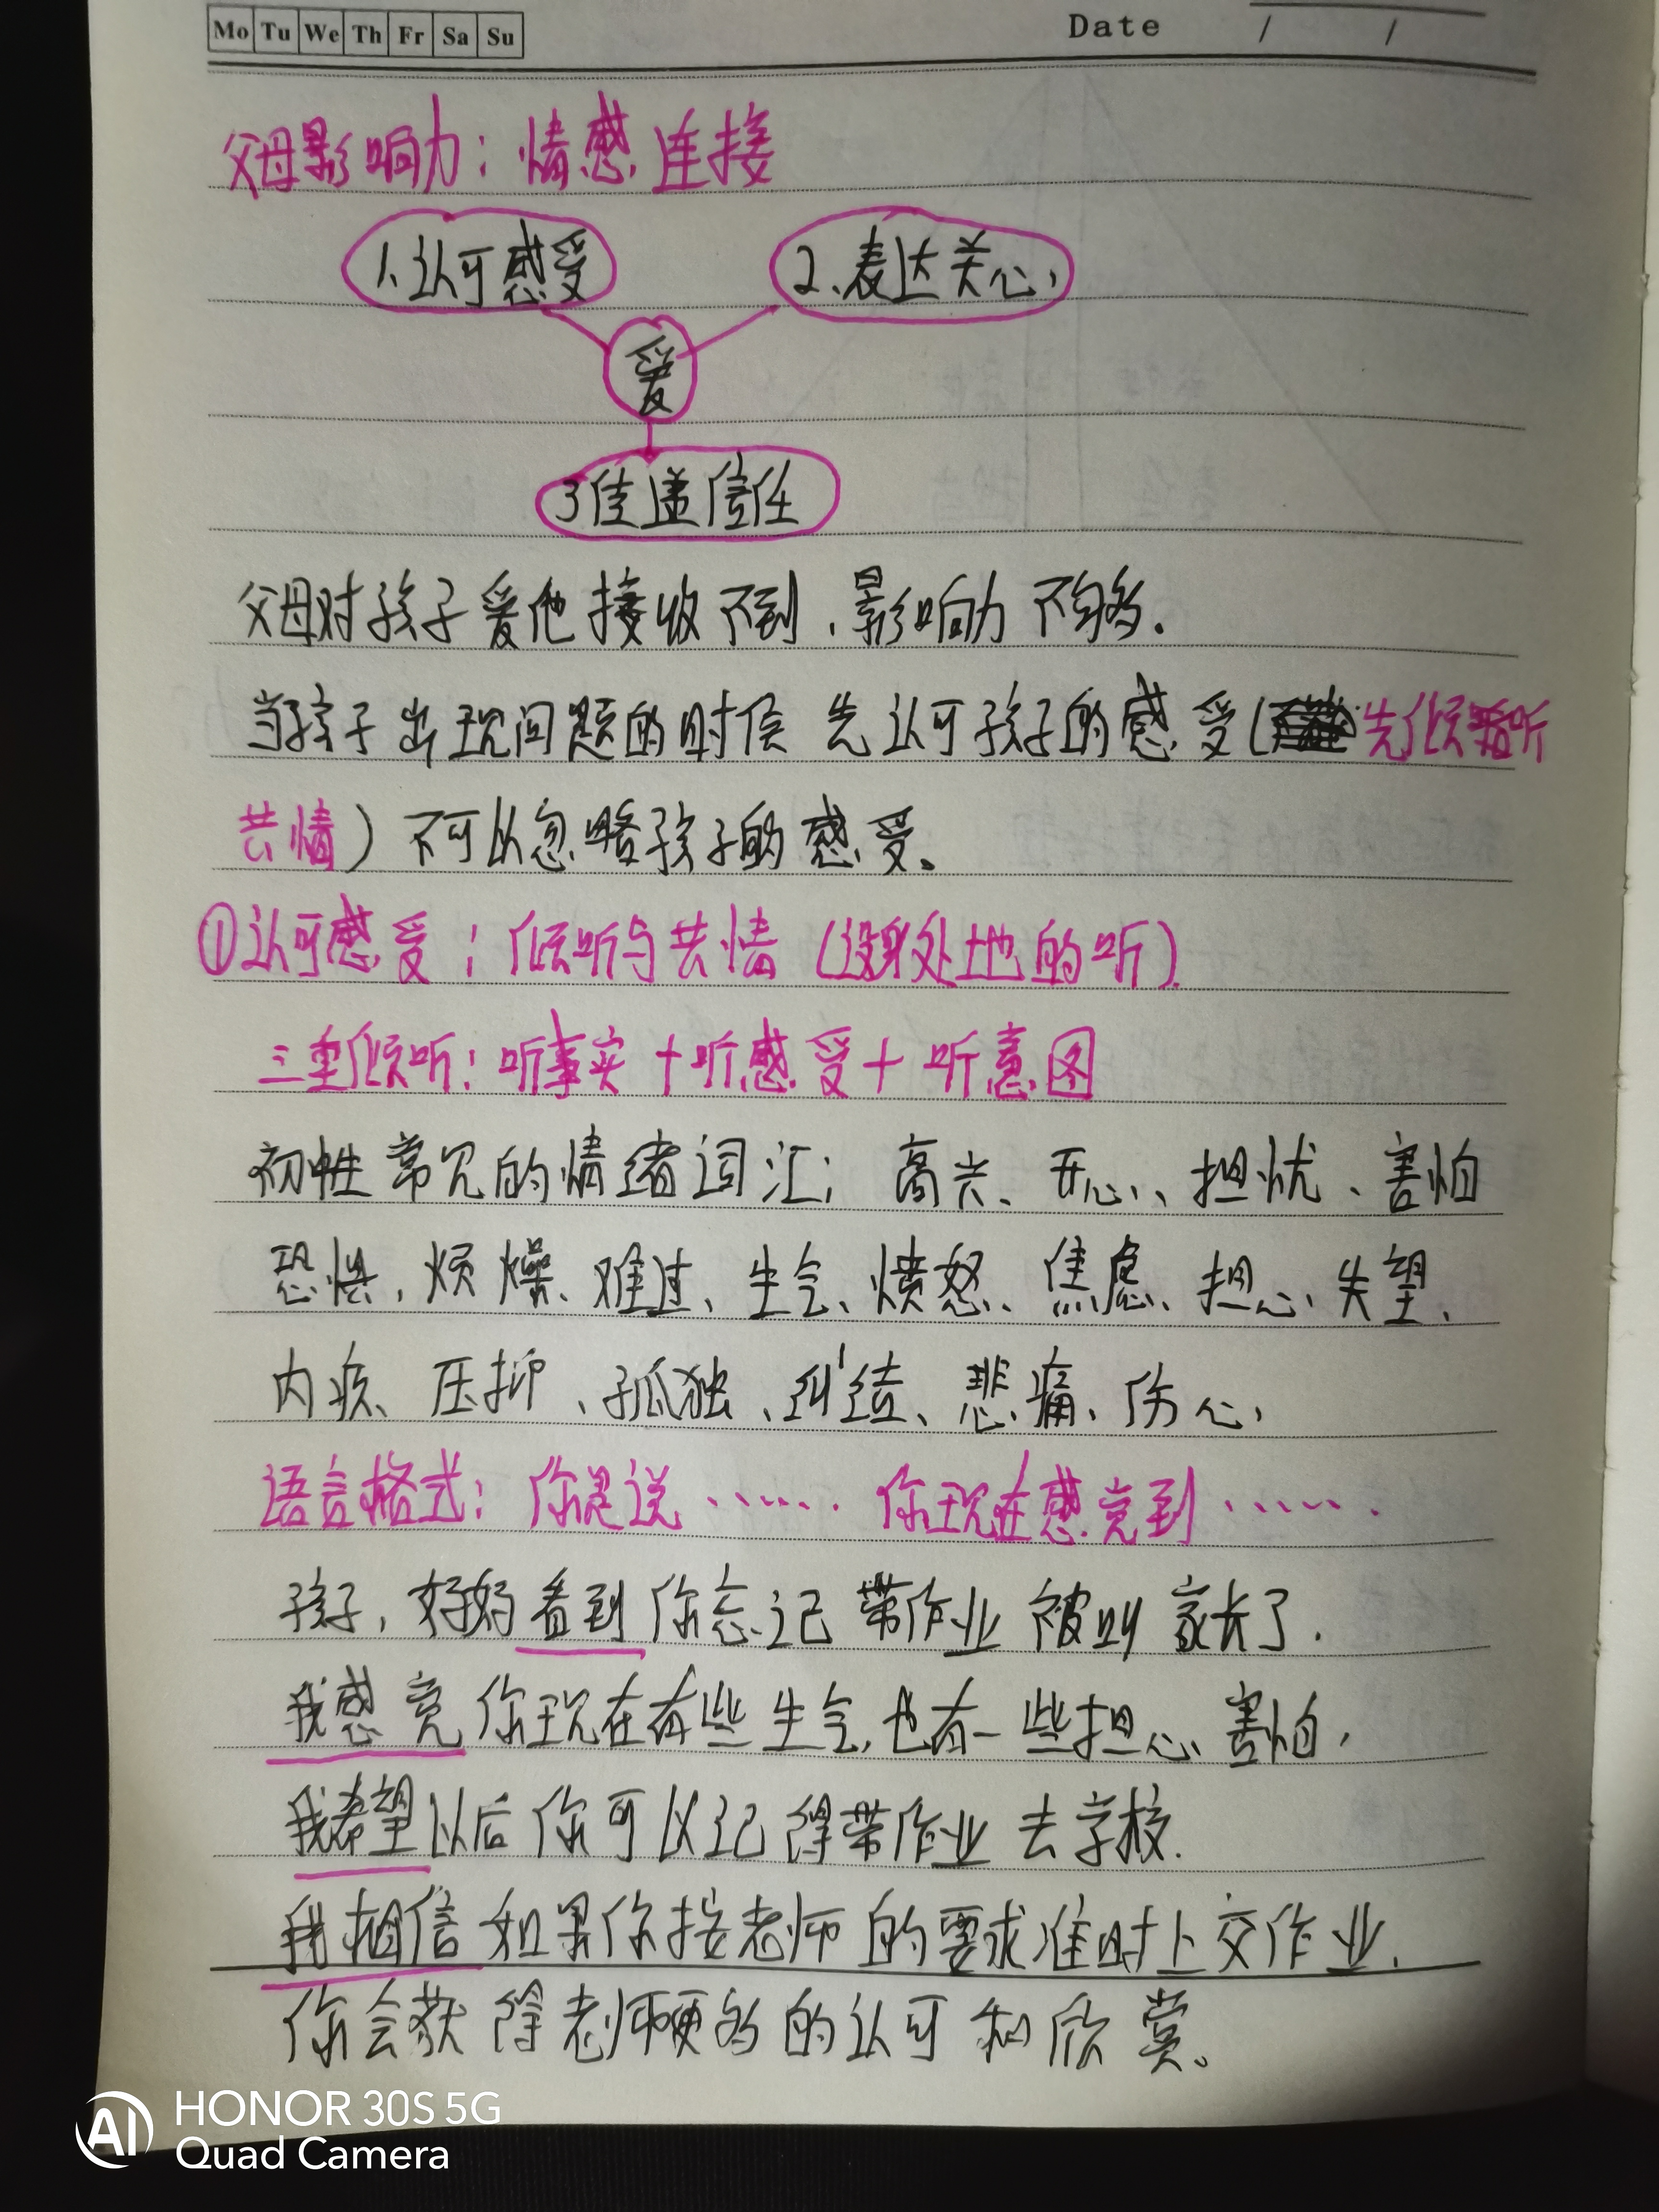 Mo Tu We Th Fr Sa Su
Date / /
父母影响力：情感连接
1、认可感受
2、表达关心
爱
3传递信任
父母对孩子爱他接收不到，影响力不够.
当孩子出现问题的时侯 先认可孩子的感受（先倾听
共情）不可以忽略孩子的感受。
①认可感受：倾听与共情（设身处地的听）.
三重倾听：听事实+听感受+听意图
初性常见的情绪词汇：高兴、开心、担忧、害怕
恐惧，烦燥、难过、生气、愤怒、焦虑、担心、失望、
内疚、压抑、孤独、纠结、悲痛、伤心
语言格式：你是说…… 你现在感觉到……
孩子，妈妈看到你忘记带作业被叫家长了.
我感觉你现在有些生气，也有一些担心、害怕，
我希望以后你可以记得带作业去学校.
我相信如果你按老师的要求准时上交作业.
你会获得老师更多的认可和欣赏。
HONOR 30S 5G
Quad Camera
AI